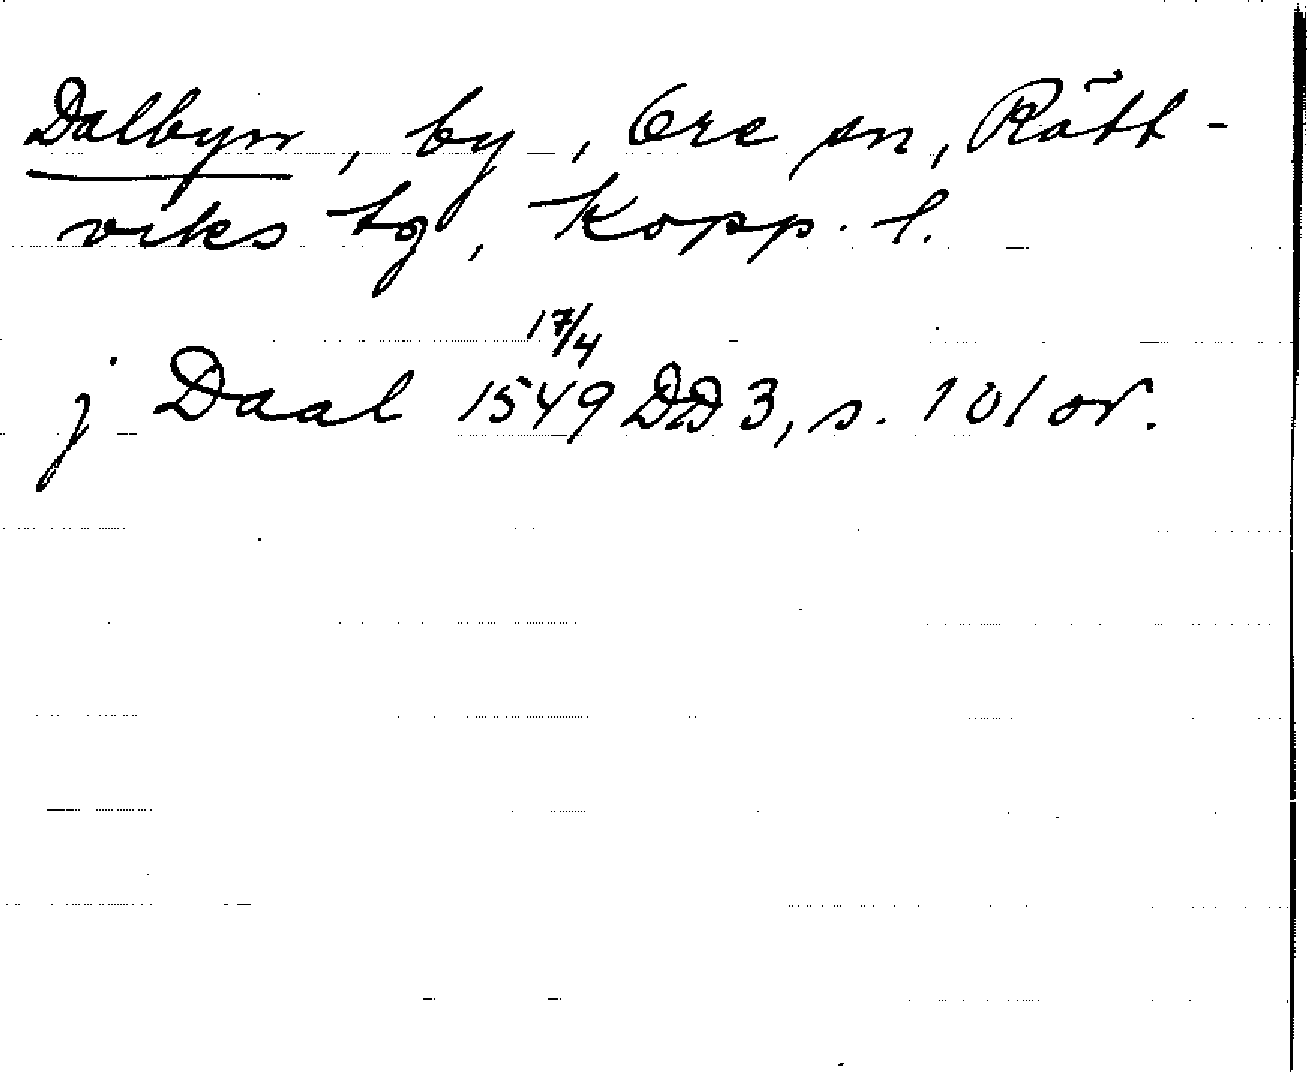 Dalbyn, by, Ore sn, Rätt-
viks tg, Kopp. l.
j Daal 17/4 1549 DD 3, s. 101 or.